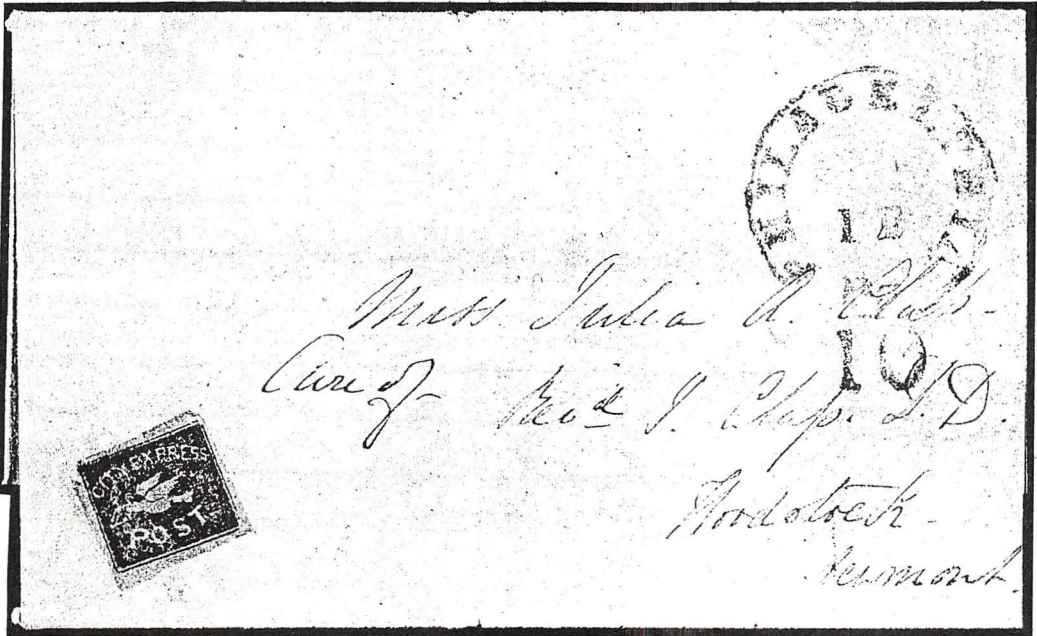 PHILADELPHIA
18
10
Miss Julia A. Clap.
Care of Revd. J. Clap. D.D.
Woodstock
Vermont.
CITY EXPRESS
POST